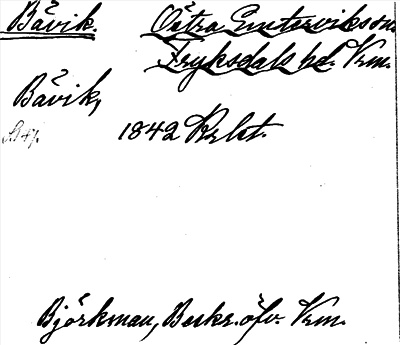 Båvik. Östra Emterviks sn.
Fryksdals hd. Vrm.
Båvik,
1842 Rrlst.
Björkman, Beskr. öfv. Vrm.